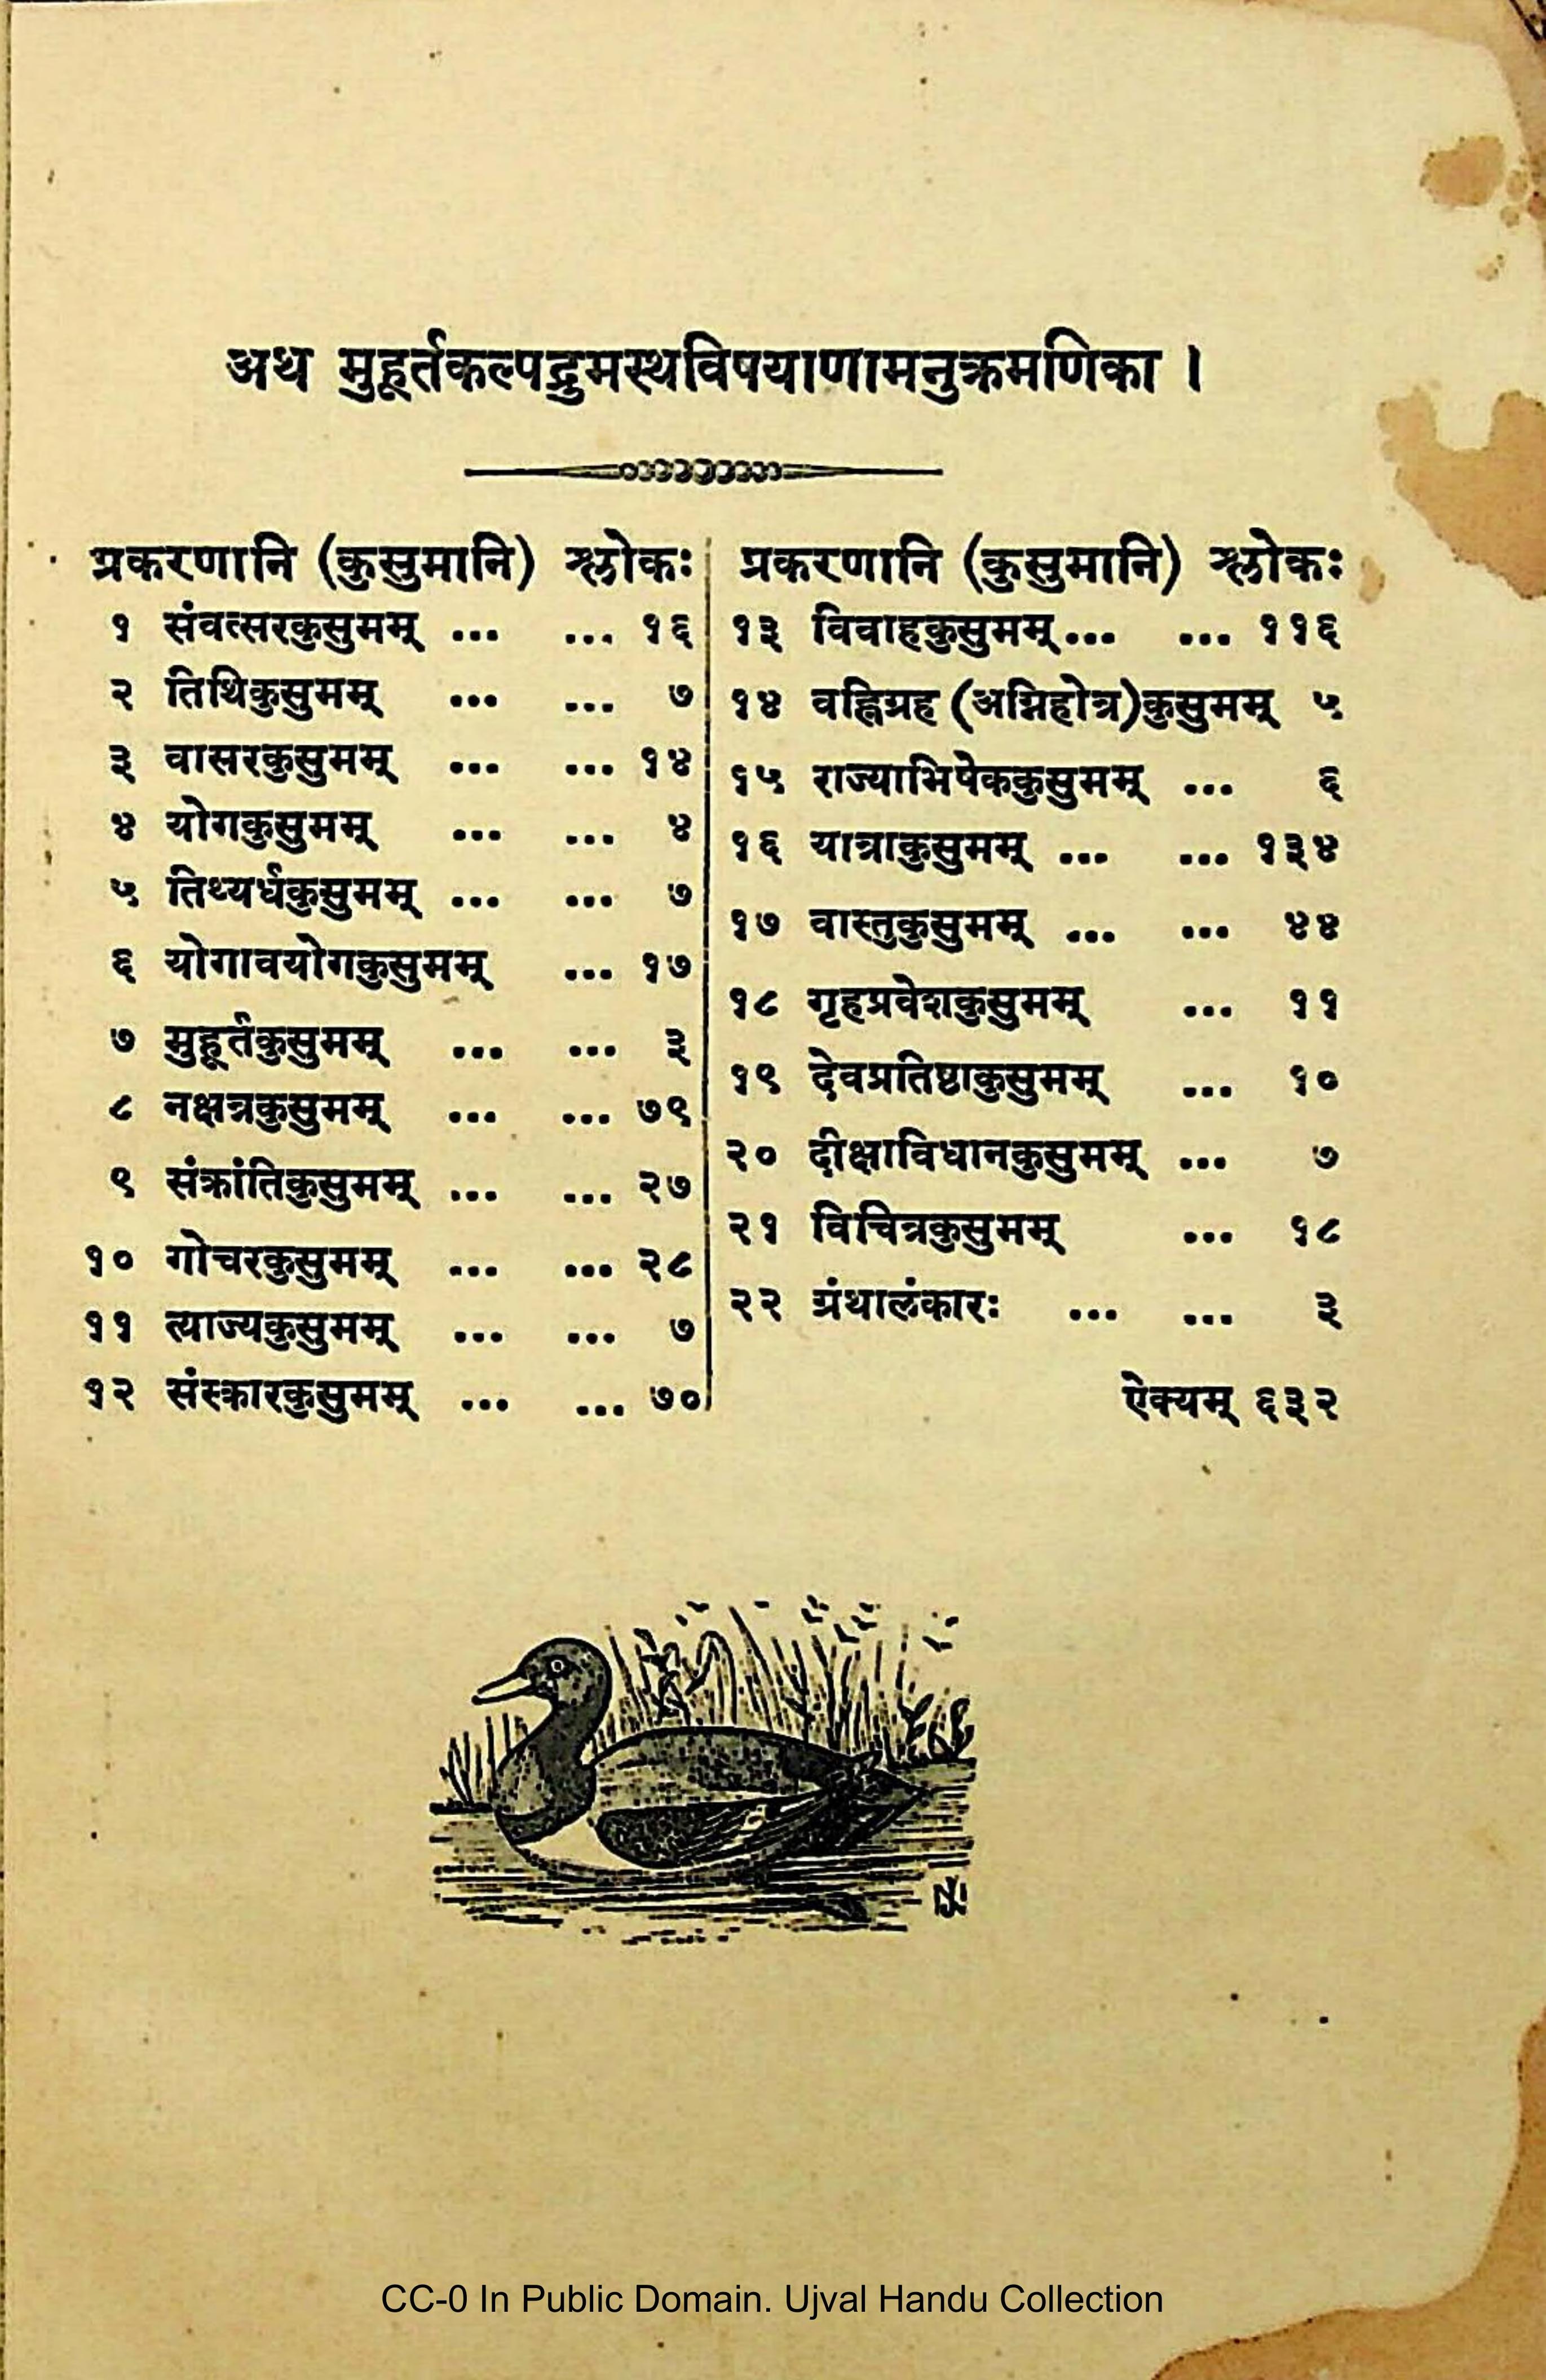 अथ मुहूर्तकल्पद्रुमस्थविषयाणामनुक्रमणिका ।
प्रकरणानि (कुसुमानि) श्लोकः
१ संवत्सरकुसुमम् ... ... १६
२ तिथिकुसुमम् ... ... ७
३ वासरकुसुमम् ... ... १४
४ योगकुसुमम् ... ... ४
५ तिथ्यर्धकुसुमम् ... ... ७
६ योगावयोगकुसुमम् ... १७
७ मुहूर्तकुसुमम् ... ... ३
८ नक्षत्रकुसुमम् ... ... ७९
९ संक्रांतिकुसुमम् ... ... २७
१० गोचरकुसुमम् ... ... २८
११ त्याज्यकुसुमम् ... ... ७
१२ संस्कारकुसुमम् ... ... ७०
प्रकरणानि (कुसुमानि) श्लोकः
१३ विवाहकुसुमम्... ... ११६
१४ वह्निग्रह (अग्निहोत्र)कुसुमम् ५
१५ राज्याभिषेककुसुमम् ... ६
१६ यात्राकुसुमम् ... ... १३४
१७ वास्तुकुसुमम् ... ... ४४
१८ गृहप्रवेशकुसुमम् ... ११
१९ देवप्रतिष्ठाकुसुमम् ... १०
२० दीक्षाविधानकुसुमम् ... ७
२१ विचित्रकुसुमम् ... १८
२२ ग्रंथालंकारः ... ... ३
ऐक्यम् ६३२
CC-0 In Public Domain. Ujval Handu Collection